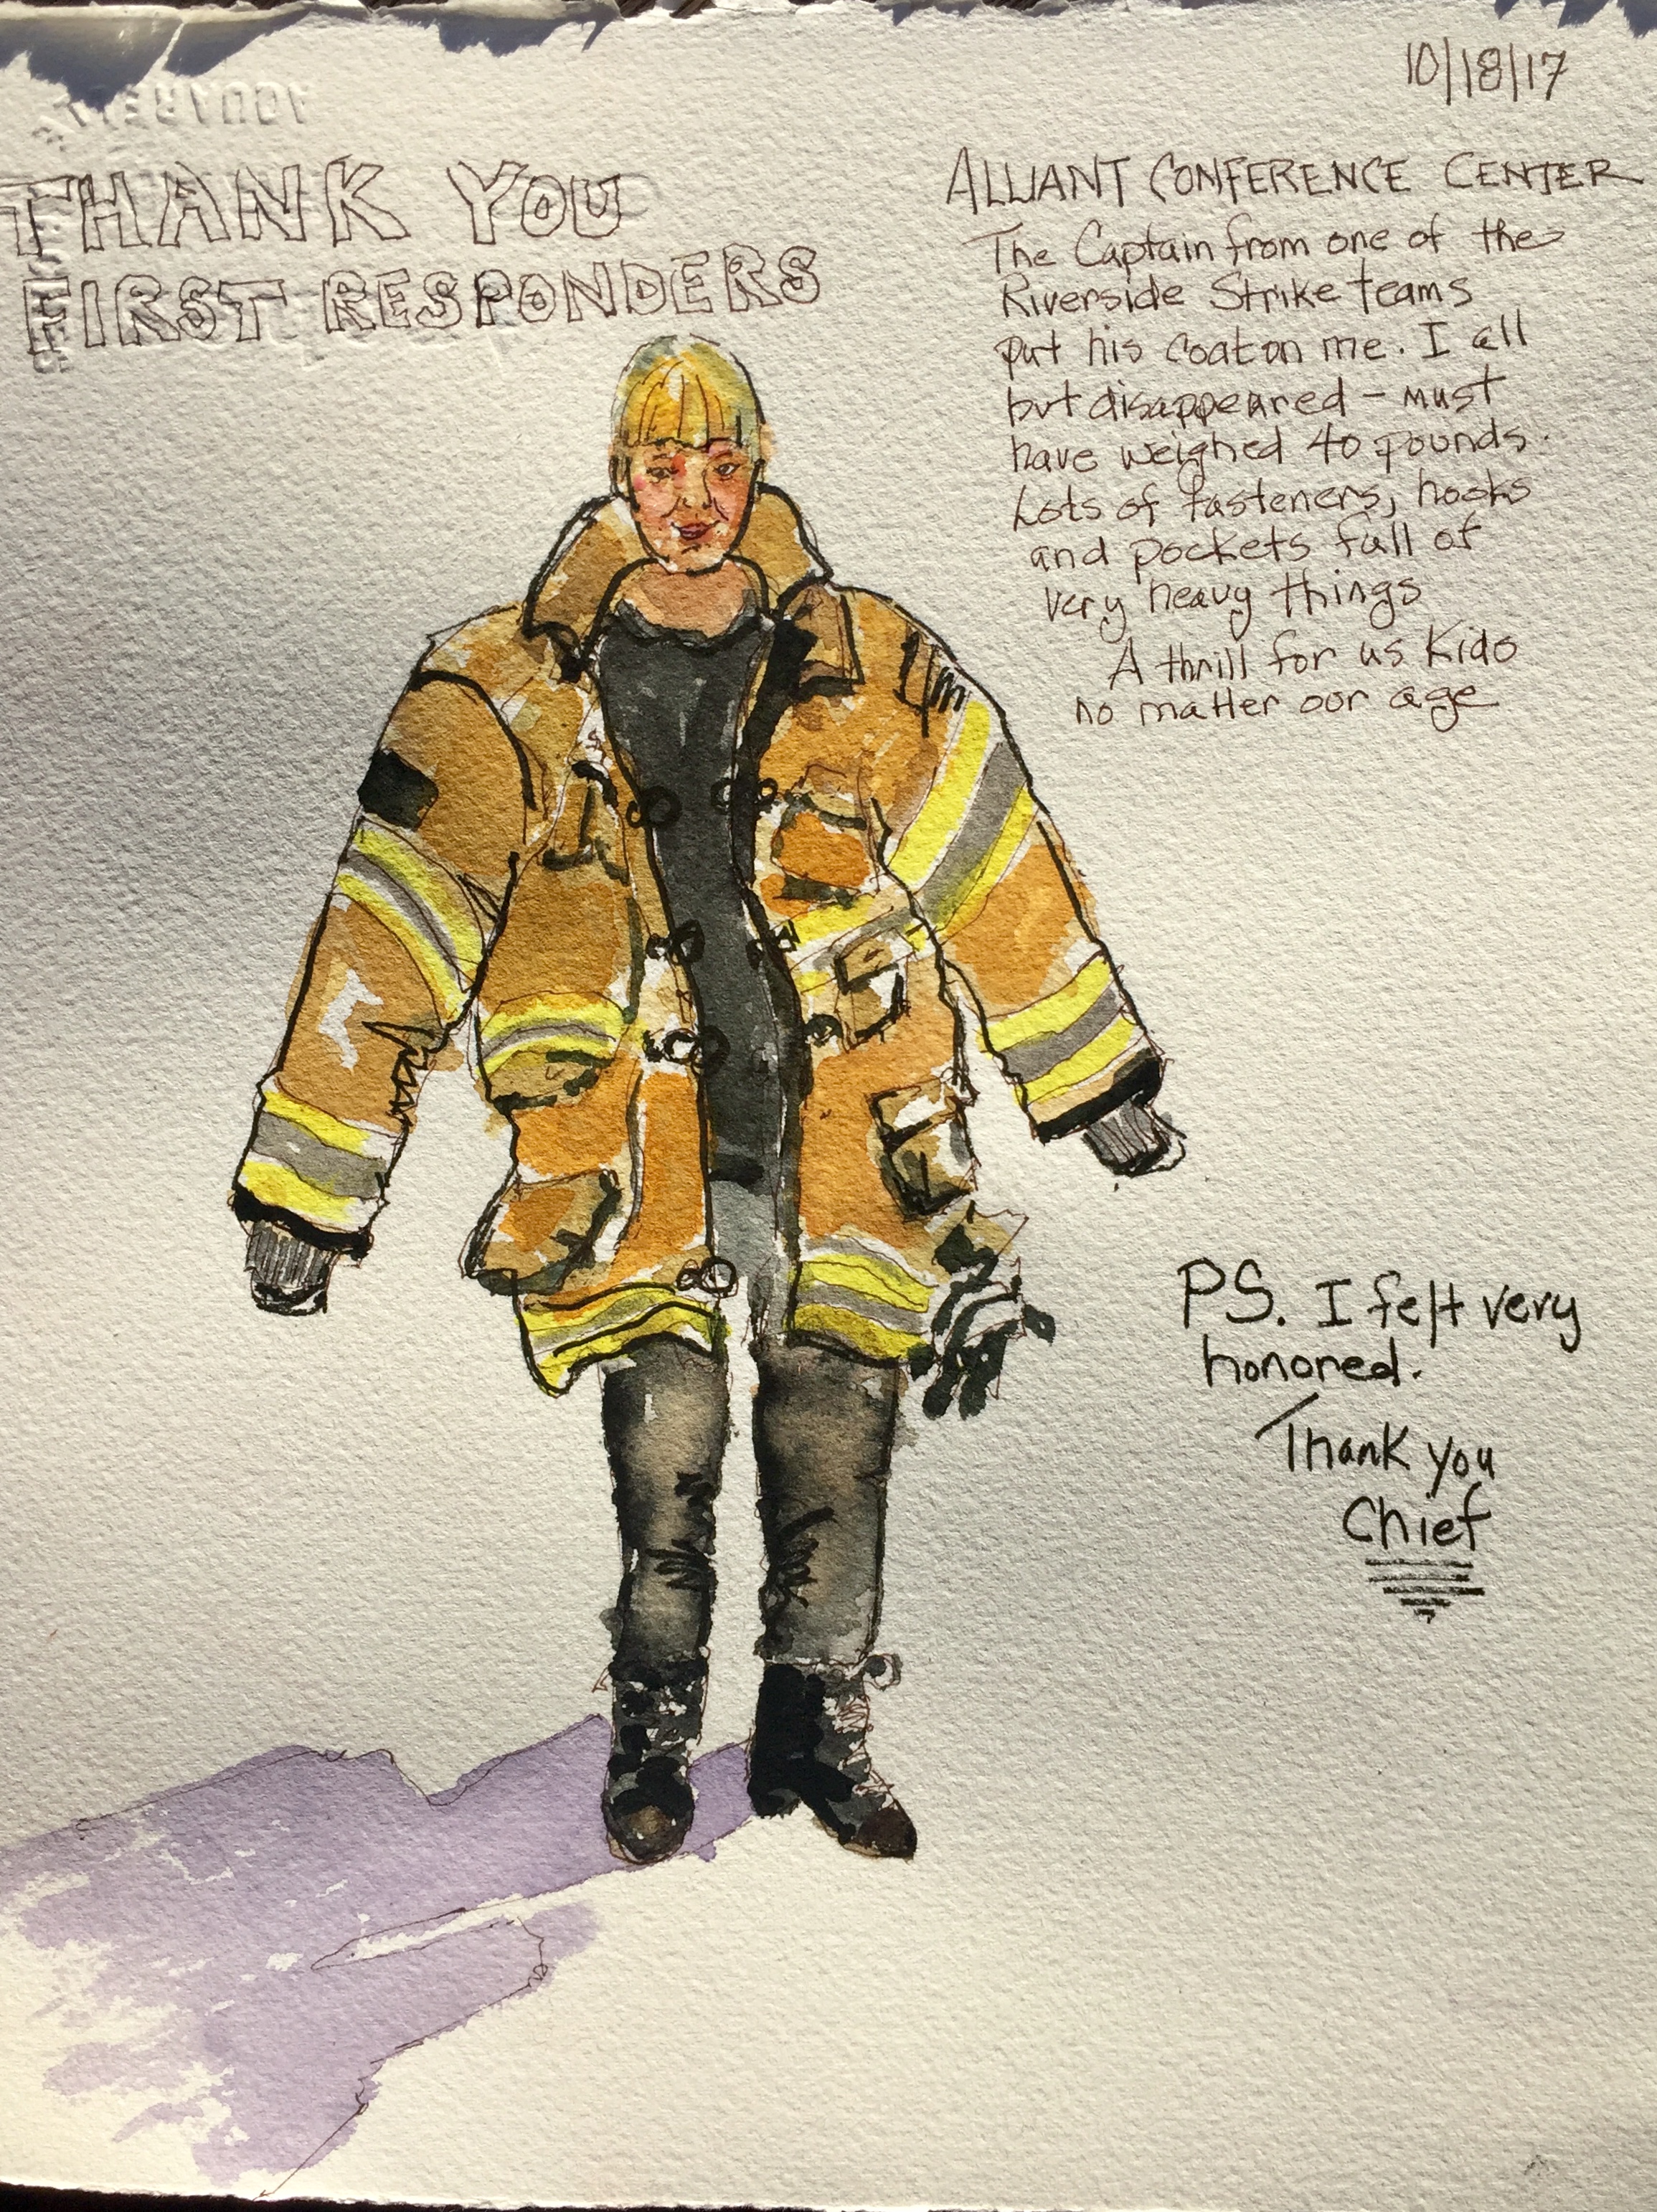 10/18/17
THANK YOU
FIRST RESPONDERS
ALLIANT CONFERENCE CENTER
The Captain from one of the
Riverside Strike teams
put his coat on me. I all
but disappeared - must
have weighed 40 pounds.
Lots of fasteners, hooks
and pockets full of
very heavy things
A thrill for us Kids
no matter our age
PS. I felt very
honored.
Thank you
Chief